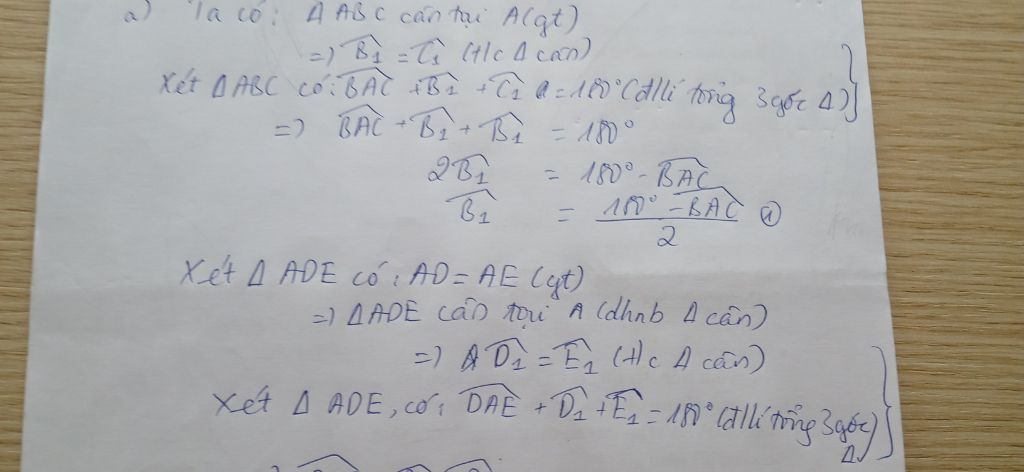 a) Ta có: Δ ABC cân tại A(gt)
=> B̂₁ = Ĉ₁ (t/c Δ cân)
Xét Δ ABC có: BAC̑ + B̂₁ + Ĉ₁ = 180° (đ/lí tổng 3 góc Δ)
=> BAC̑ + B̂₁ + B̂₁ = 180°
2B̂₁ = 180° - BAC̑
B̂₁ = (180° - BAC̑)/2 ①
Xét Δ ADE có: AD = AE (gt)
=> Δ ADE cân tại A (dhnb Δ cân)
=> D̂₁ = Ê₁ (t/c Δ cân)
Xét Δ ADE, có: DAȆ + D̂₁ + Ê₁ = 180° (đ/lí tổng 3 góc Δ)